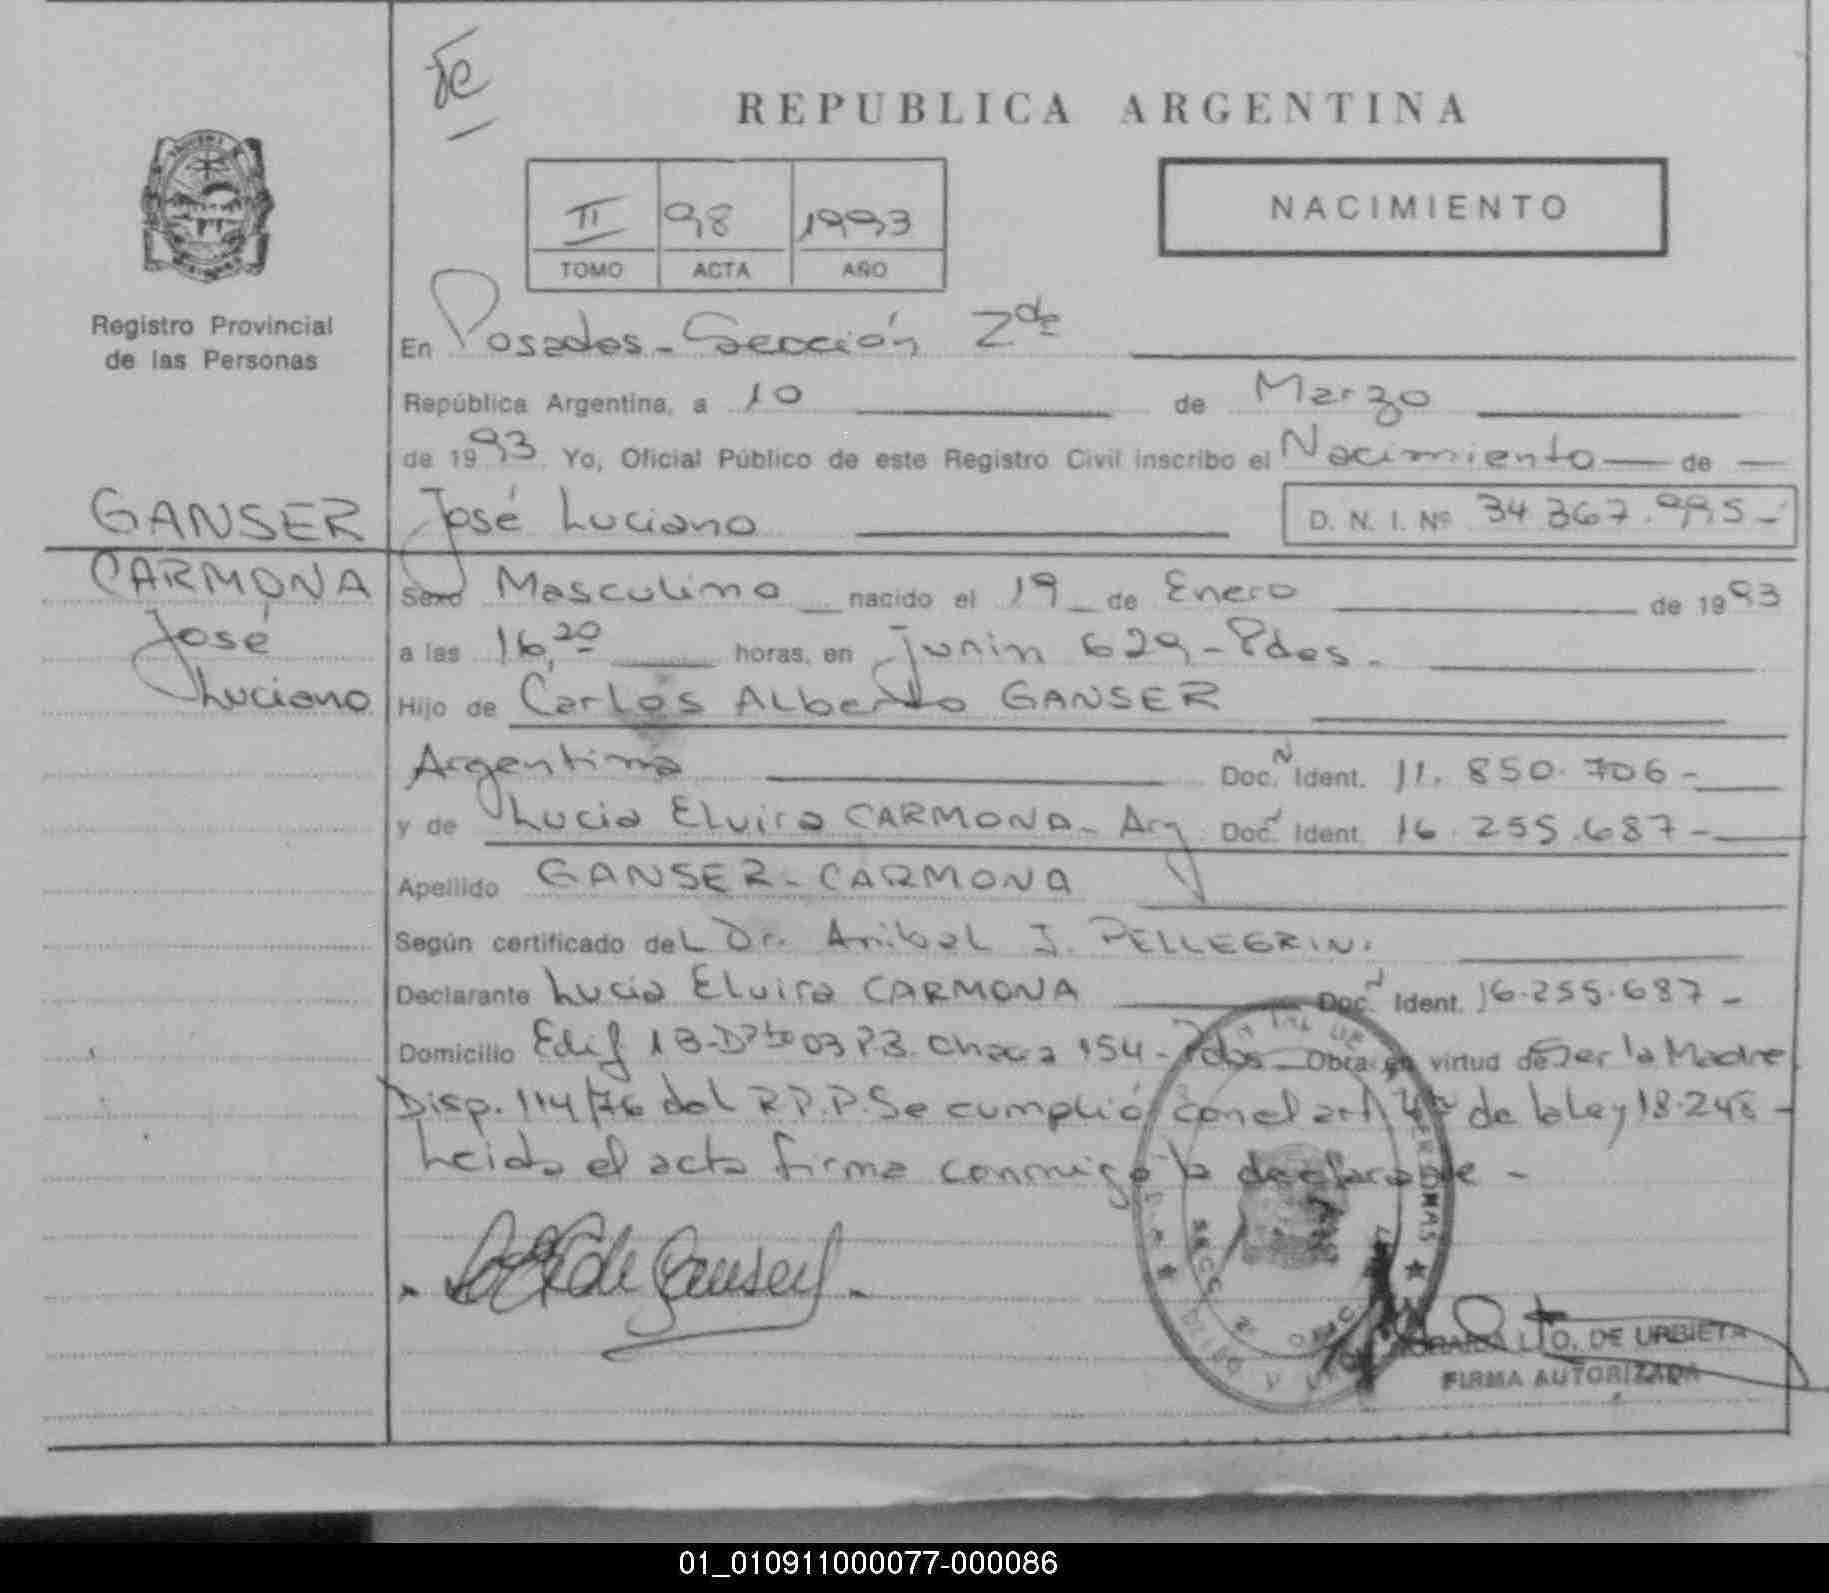 REPUBLICA ARGENTINA
II 98 1993
TOMO ACTA AÑO
NACIMIENTO
Registro Provincial
de las Personas
En Posadas - Sección 2da
República Argentina, a 10 de Marzo
de 1993 Yo, Oficial Público de este Registro Civil inscribo el Nacimiento de
GANSER
CARMONA
José
Luciano
José Luciano D. N. I. Nº 34.367.995-
Sexo Masculino nacido el 19 de Enero de 1993
a las 16,20 horas, en Junin 629 - Pdas.
Hijo de Carlos Alberto GANSER
Argentina Doc. N Ident. 11.850.706-
y de Lucia Elvira CARMONA - Arg Doc. Ident. 16.255.687-
Apellido GANSER - CARMONA
Según certificado del Dr. Anibal J. PELLEGRINI
Declarante Lucia Elvira CARMONA Doc. Ident. 16.255.687-
Domicilio Edif 13-Dpto 03 P.B. Chacra 154 - Pdas Obra en virtud de Ser la Madre
Disp. 114/76 del R.P.P. Se cumplió con el art. de la Ley 18.248-
Leida el acta firma conmigo la declarante -
de Ganser
SECC 2ª
L. O. DE URBIETA
FIRMA AUTORIZADA
01_010911000077-000086